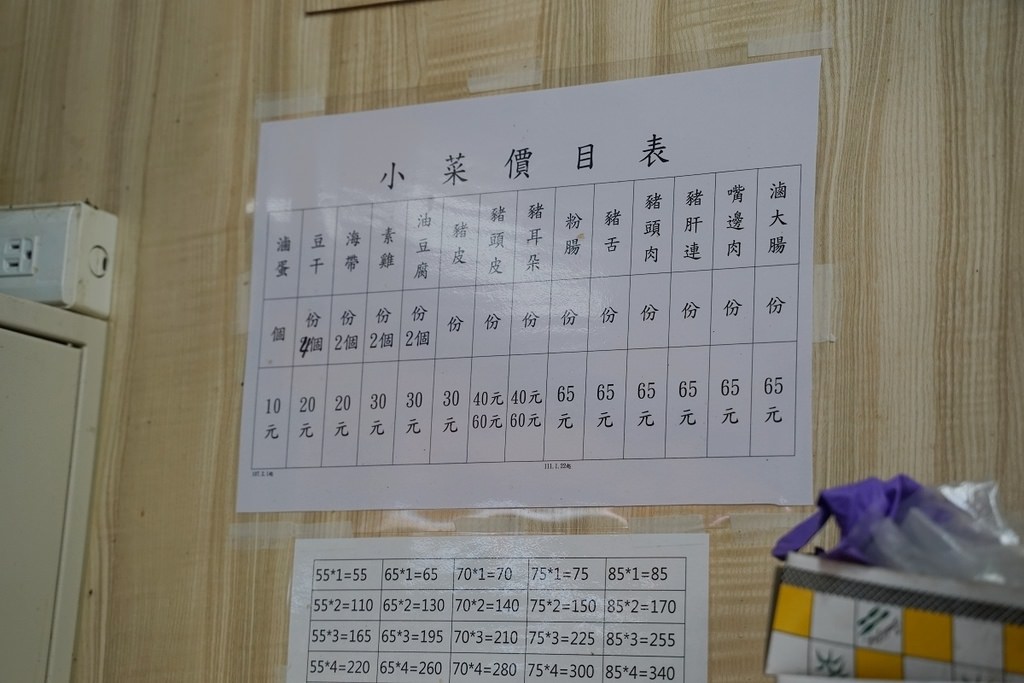 小菜價目表
滷蛋 豆干 海帶 素雞 油豆腐 豬皮 豬頭皮 豬耳朵 粉腸 豬舌 豬頭肉 豬肝連 嘴邊肉 滷大腸
個 份4個 份2個 份2個 份2個 份 份 份 份 份 份 份 份 份
10元 20元 20元 30元 30元 30元 40元60元 40元60元 65元 65元 65元 65元 65元 65元
111.1.22起
55*1=55 65*1=65 70*1=70 75*1=75 85*1=85
55*2=110 65*2=130 70*2=140 75*2=150 85*2=170
55*3=165 65*3=195 70*3=210 75*3=225 85*3=255
55*4=220 65*4=260 70*4=280 75*4=300 85*4=340